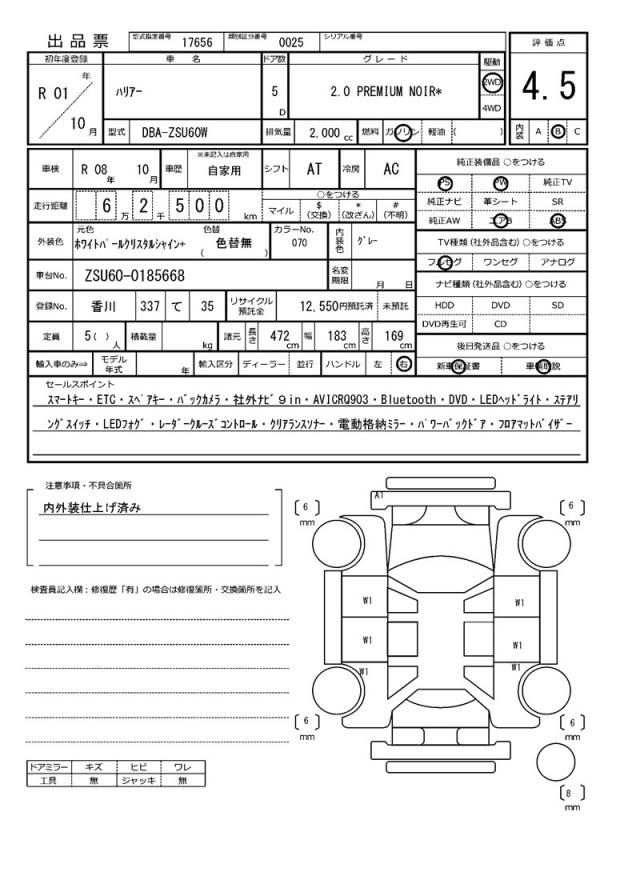 出品票 型式指定番号 17656 類別区分番号 0025 シリアル番号
初年度登録 車名 ドア数 グレード 駆動 評価点
R 01 年 10 月 ハリアー 5 D 2.0 PREMIUM NOIR* 2WD 4WD 4.5
型式 DBA-ZSU60W 排気量 2,000 cc 燃料 ガソリン 軽油 ( ) 内装 A B C
車検 R 08 年 10 月 車歴 ※未記入は自家用 自家用 シフト AT 冷房 AC
純正装備品 ○をつける
PS PW 純正TV
純正ナビ 革シート SR
純正AW エアB ABS
走行距離 6 万 2 千 5 0 0 km ○をつける マイル $ (交換) * (改ざん) # (不明)
外装色 元色 ホワイトパールクリスタルシャイン+ 色替 ( 色替無 ) カラーNo. 070 内装色 グレー
TV種類 (社外品含む) ○をつける
フルセグ ワンセグ アナログ
車台No. ZSU60-0185668 名変期限 月 日
ナビ種類 (社外品含む) ○をつける
HDD DVD SD
DVD再生可 CD
登録No. 香川 337 て 35 リサイクル預託金 12,550円預託済 未預託
定員 5( ) 人 積載量 kg 諸元 長さ 472 cm 幅 183 cm 高さ 169 cm
後日発送品 ○をつける
新車保証書 車輌取説
輸入車のみ⇒ モデル年式 年 輸入区分 ディーラー 並行 ハンドル 左 右
セールスポイント
スマートキー・ETC・スペアキー・バックカメラ・社外ナビ9in・AVICRQ903・Bluetooth・DVD・LEDヘッドライト・ステアリ
ングスイッチ・LEDフォグ・レーダークルーズコントロール・クリアランスソナー・電動格納ミラー・パワーバックドア・フロアマットバイザー
注意事項・不具合箇所
内外装仕上げ済み
検査員記入欄:修復歴「有」の場合は修復箇所・交換箇所を記入
A1
6 mm
6 mm
W1
W1
W1
W1
W1
W1
6 mm
6 mm
8 mm
ドアミラー キズ ヒビ ワレ
工具 無 ジャッキ 無